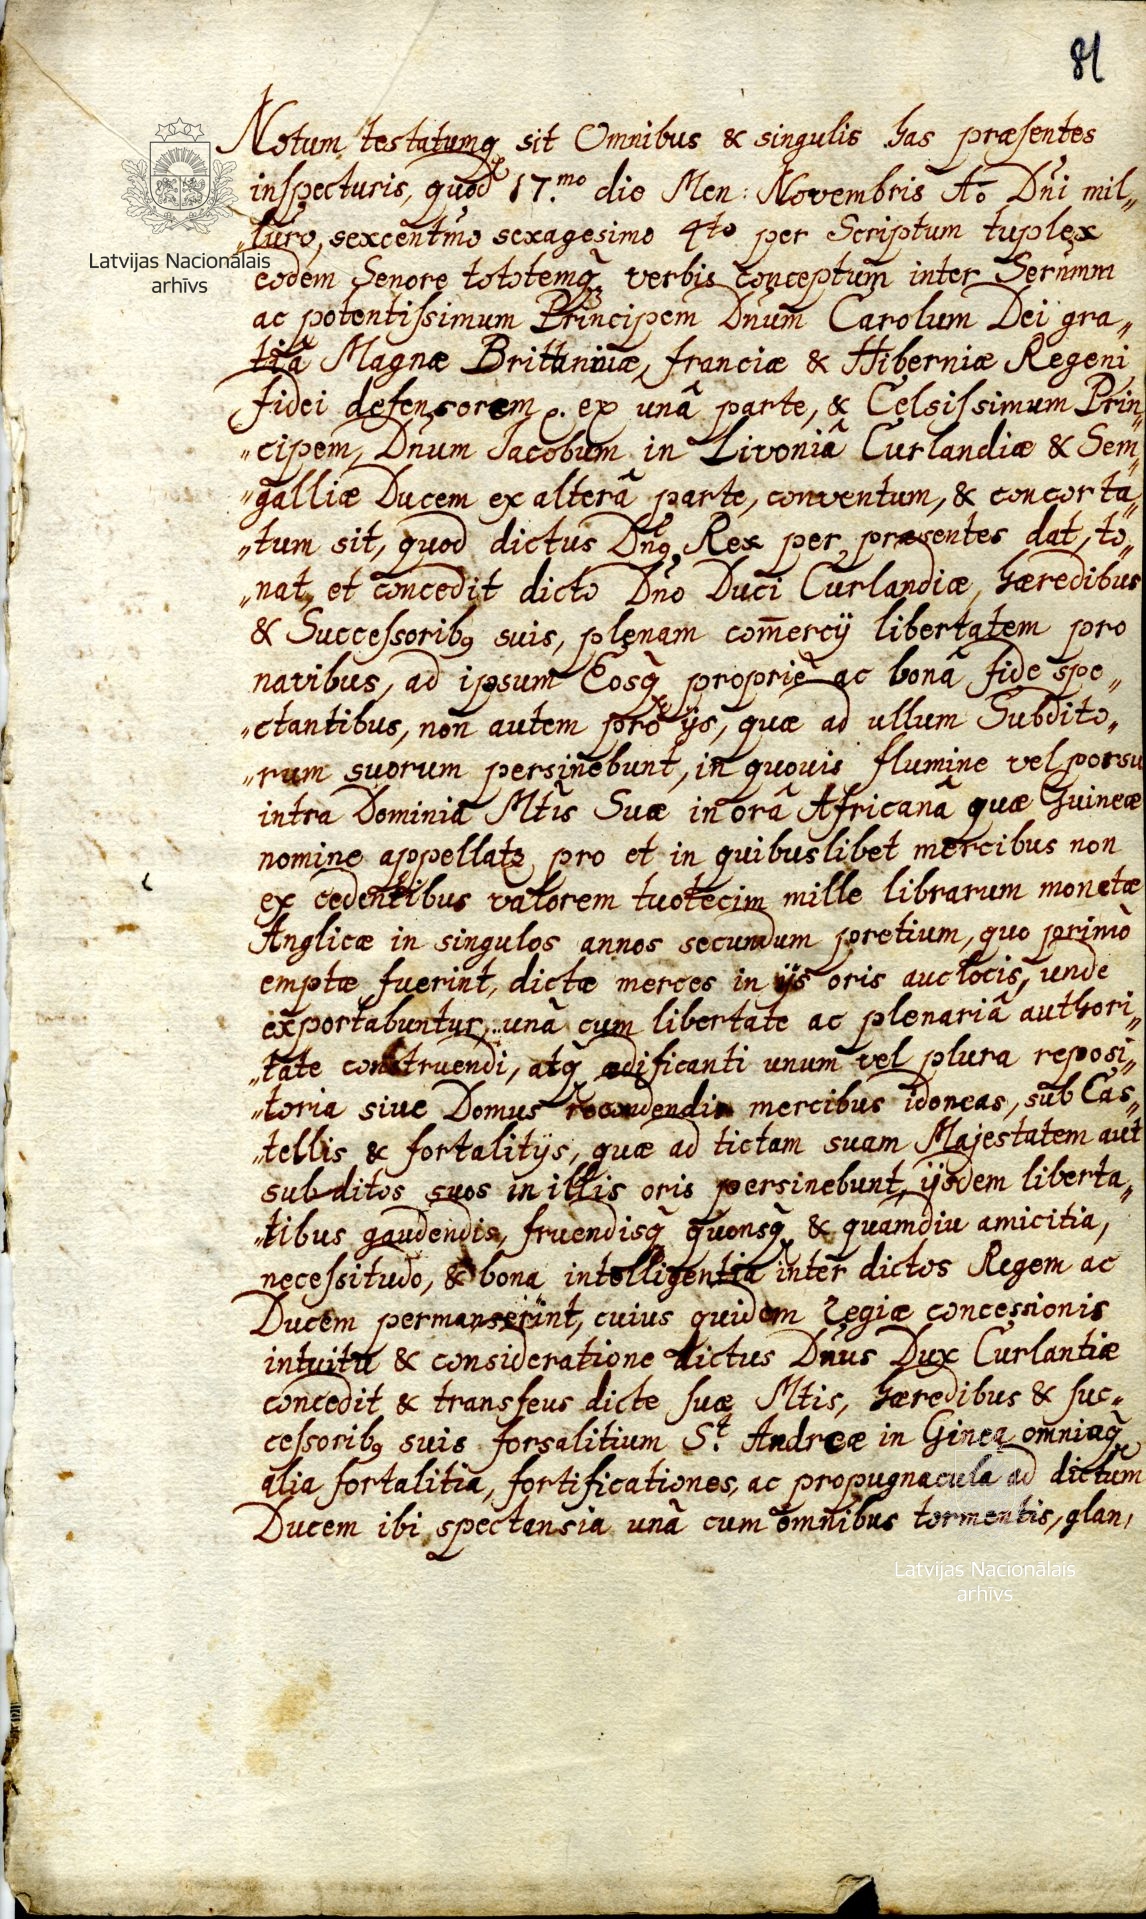 81
Notum testatumq̃ sit Omnibus & singulis has præsentes
inspecturis, quod 17.mo die Men: Novembris Aō Dñi mil„
„luro, sexcentmo sexagesimo 4to per Scriptum tuplex
eodem Senore tototemq̃ verbis conceptum inter Serm̃um
ac potentissimum Principem Dñum Carolum Dei gra„
tiâ Magnæ Brittaniæ, franciæ & Hiberniæ Regeni
fidei defensorem p. ex unâ parte, & Celsissimum Prin„
„cipem, Dñum Jacobum in Livoniâ Curlandiæ & Sem„
„galliæ Ducem ex alterâ parte, conventum, & concorta„
„tum sit, quod dictus Dñq Rex per præsentes dat, to„
„nat, et concedit dicto Dño Duci Curlandiæ, hæredibus
& Successorib9 suis, plenam com̄ercij libertatem pro
navibus, ad ipsum Eosq̃ propriè ac bonâ fide spe„
„ctantibus, non autem pro ijs, quæ ad ullum Subdito„
„rum suorum persinebunt, in quovis flumine vel porsu
intra Dominia Mt̃is Suæ in orâ Africanâ quæ Guineæ
nomine appellatz pro et in quibuslibet mercibus non
ex cedentibus valorem tuotecim mille librarum monetæ
Anglicæ in singulos annos secundum pretium, quo primò
emptæ fuerint, dictæ merces in ijs oris auc locis, unde
exportabuntur, unâ cum libertate ac plenariâ authori„
„tate construendi, atq̃ ædificanti unum vel plura reposi„
„toria siue Domus recondendis mercibus idoneas, sub Cas„
„tellis & fortalitijs, quæ ad tictam suam Majestatem aut
subditos suos in illis oris persinebunt, ijsdem liberta„
„tibus gaudendis, fruendisq̃ quonsq̃ & quamdiu amicitia,
necessitudo, & bona intelligentia inter dictos Regem ac
Ducem permanserint, cuius quidem regiæ concessionis
intuitu & consideratione dictus Dnus Dux Curlantiæ
concedit & transfeus dicte suæ Mtis, hæredibus & suc„
cessorib9 suis forsalitium S.t Andreæ in Ginea omniaq̃
alia fortalitia, fortificationes, ac propugnacula ad dictum
Ducem ibi spectansia unâ cum omnibus tormentis, glan,
Latvijas Nacionālais
arhīvs
Latvijas Nacionālais
arhīvs